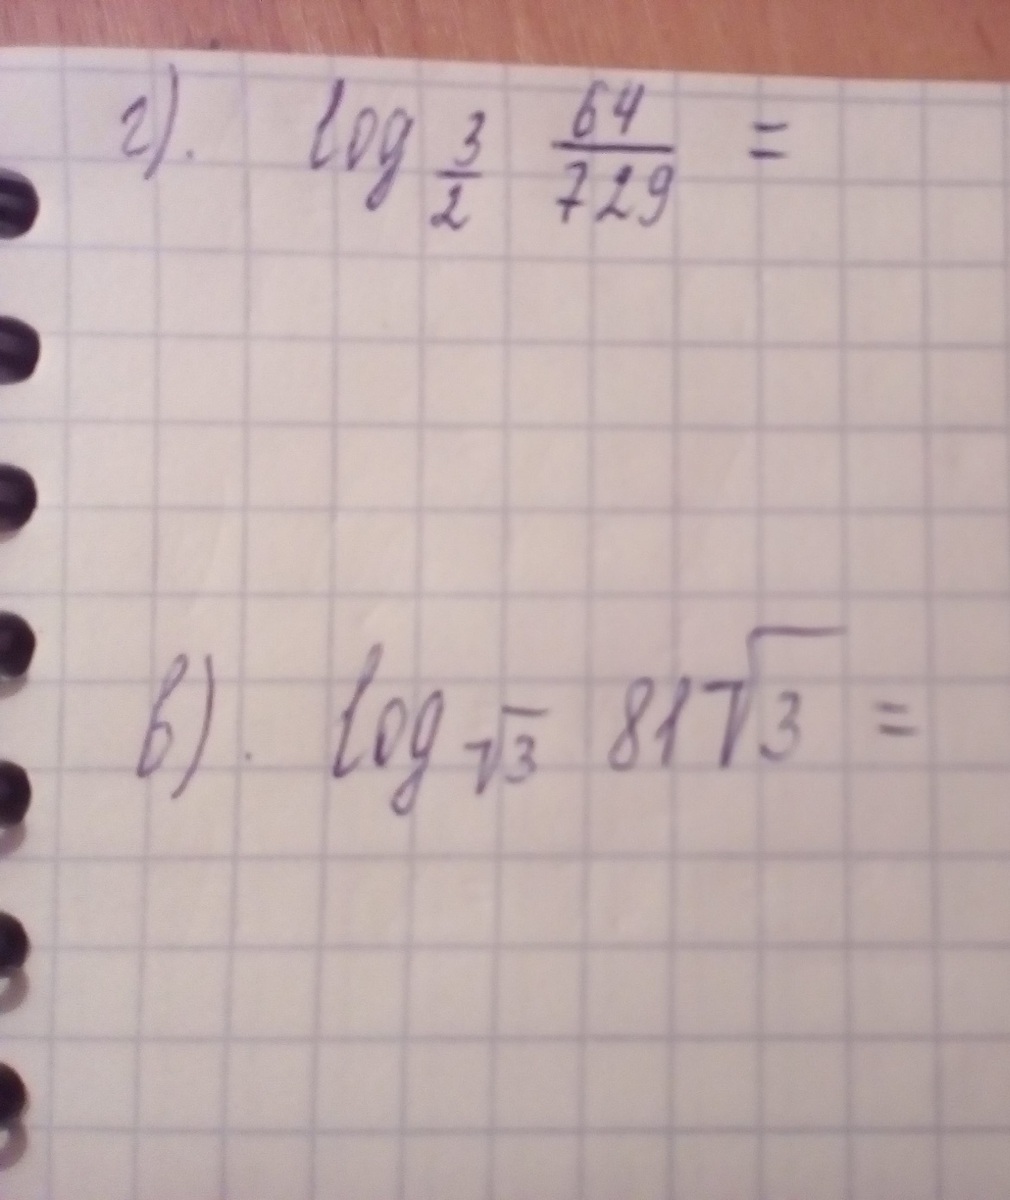 г). log 3/2 64/729 =
в). log √3 81√3 =